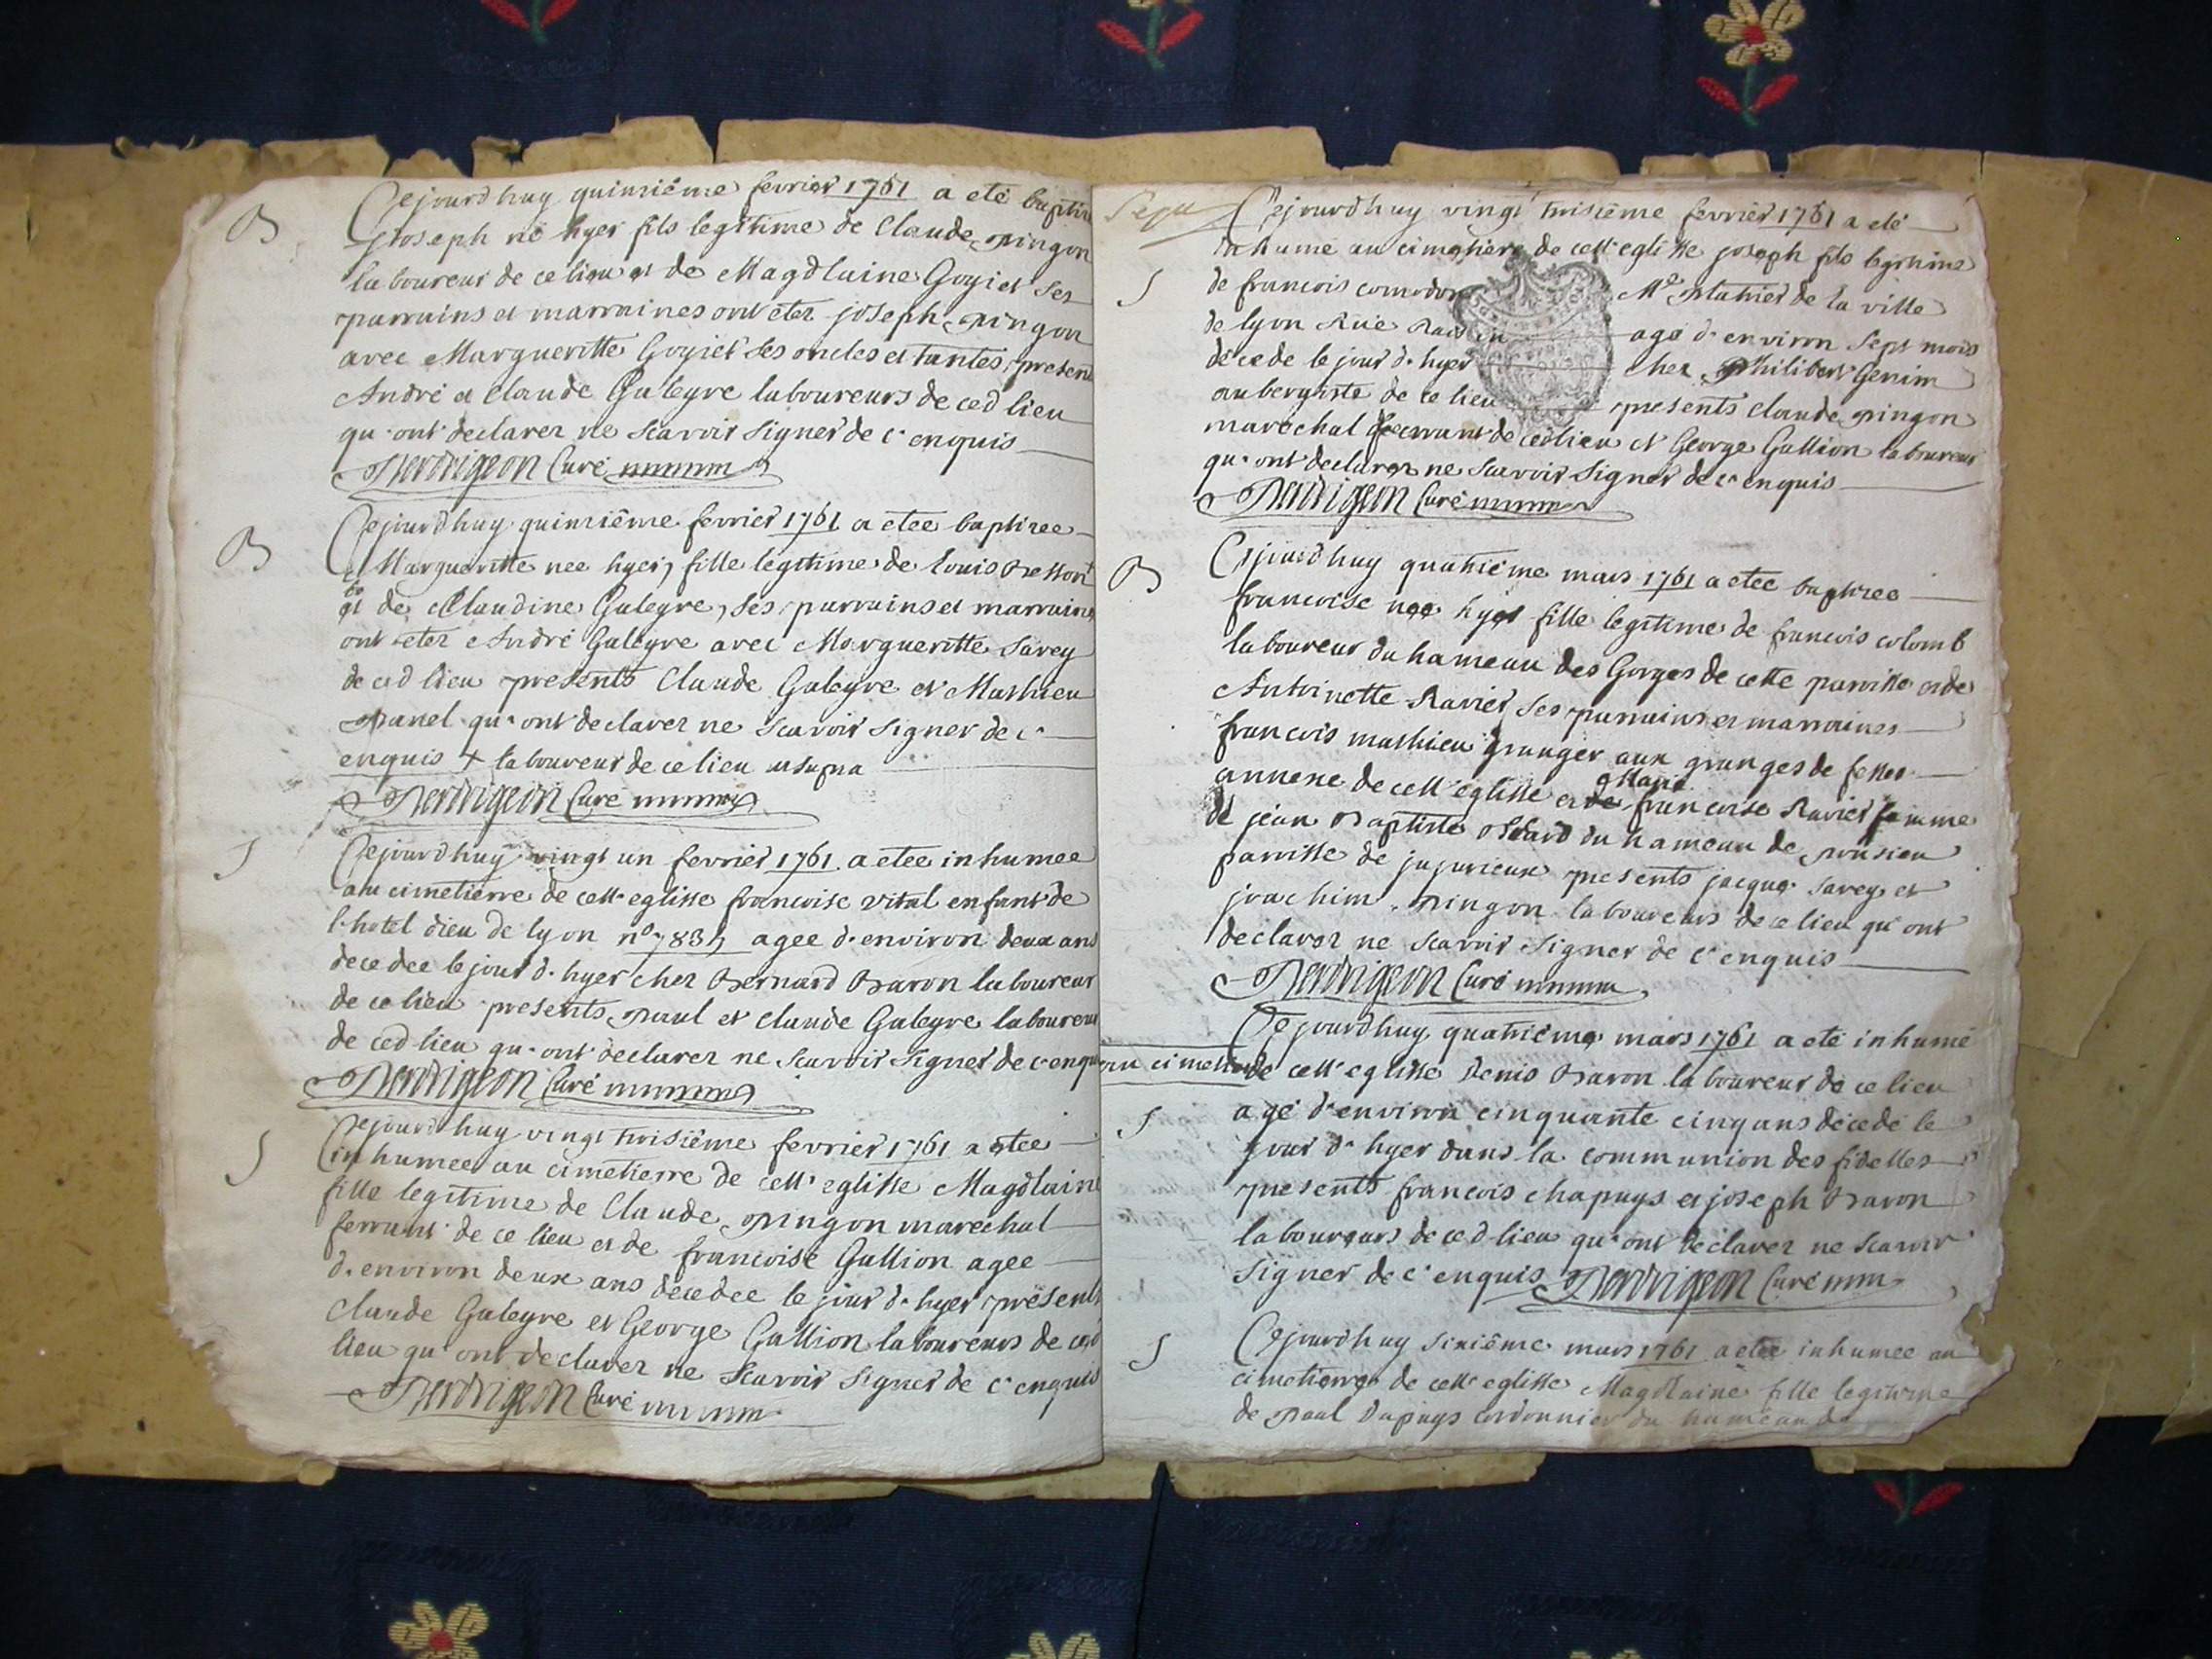 B
Cejourdhuy quinzième fevrier 1761 a eté baptizé
joseph né hyer fils legitime de Claude pingon
laboureur de ce lieu et de Magdlaine Goyiet ses
parrains et marraines ont eter joseph pingon
avec Margueritte Goyiet ses oncles et tantes, present
André et Claude Galeyre laboureurs de ced lieu
qu'ont declarer ne scavoir signer de c' enquis
Curé
B
Cejourdhuy quinzième fevrier 1761 a etee baptizee
Margueritte nee hyer, fille legitime de Louis
et de Claudine Galeyre, ses parrains et marraines
ont eter André Galeyre avec Margueritte Savey
de ced lieu presents Claude Galeyre et Mathieu
panel qu'ont declarer ne scavoir signer de c'
enquis + laboureur de ce lieu ut supra
Curé
S
Cejourdhuy vingt un fevrier 1761 a etee inhumee
au cimetierre de cett' eglisse francoise vital enfant de
l'hotel dieu de lyon n° agee d'environ deux ans
decedee le jour d'hyer chez Bernard Baron laboureur
de ce lieu presents paul et claude Galeyre laboureurs
de ced lieu qu'ont declarer ne scavoir signer de c'enquis
Curé
S
Cejourdhuy vingt troisième fevrier 1761 a etee
inhumee au cimetierre de cett' eglisse Magdlaine
fille legitime de Claude pingon marechal
ferrant de ce lieu et de francoise Gullion agee
d'environ deux ans decedee le jour d'hyer presents
Claude Galeyre et George Gullion laboureurs de ced
lieu qu'ont declarer ne scavoir signer de c'enquis
Curé
Cejourdhuy vingt troisième fevrier 1761 a eté
inhumé au cimetiere de cett' eglisse joseph fils legitime
S
de francois Me platrier de la ville
de lyon Rüe agé d'environ sept mois
decede le jour d'hyer chez philibert Genim
aubergiste de ce lieu presents claude pingon
marechal ferrant de ced lieu et George Gullion laboureur
qu'ont declarer ne scavoir signer de c'enquis
Curé
B
Cejourdhuy quatrième mars 1761 a etee baptizee
francoise nee hyer fille legitime de francois colomb
laboureur du hameau des Gorges de cette paroisse et de
Antoinette Ravier ses parrains et marraines
francois mathieu granger aux granges de
annexe de cett' eglisse et de Marie francoise Ravier femme
de jean Baptiste du hameau de
paroisse de jujurieux presents jacque Savey et
joachim pingon laboureurs de ce lieu qu'ont
declarer ne scavoir signer de c'enquis
Curé
Cejourdhuy quatrième mars 1761 a eté inhumé
au cimetiere de cett' eglisse Denis Baron laboureur de ce lieu
S
agé d'environ cinquante cinq ans decedé le
jour d'hyer dans la communion des fidelles
presents francois chapuys et joseph Baron
laboureurs de ced lieu qu'ont declarer ne scavoir
signer de c'enquis Curé
S
Cejourdhuy sixième mars 1761 a etee inhumee au
cimetierre de cett' eglisse Magdlaine fille legitime
de paul Dupuys cordonnier du hameau de